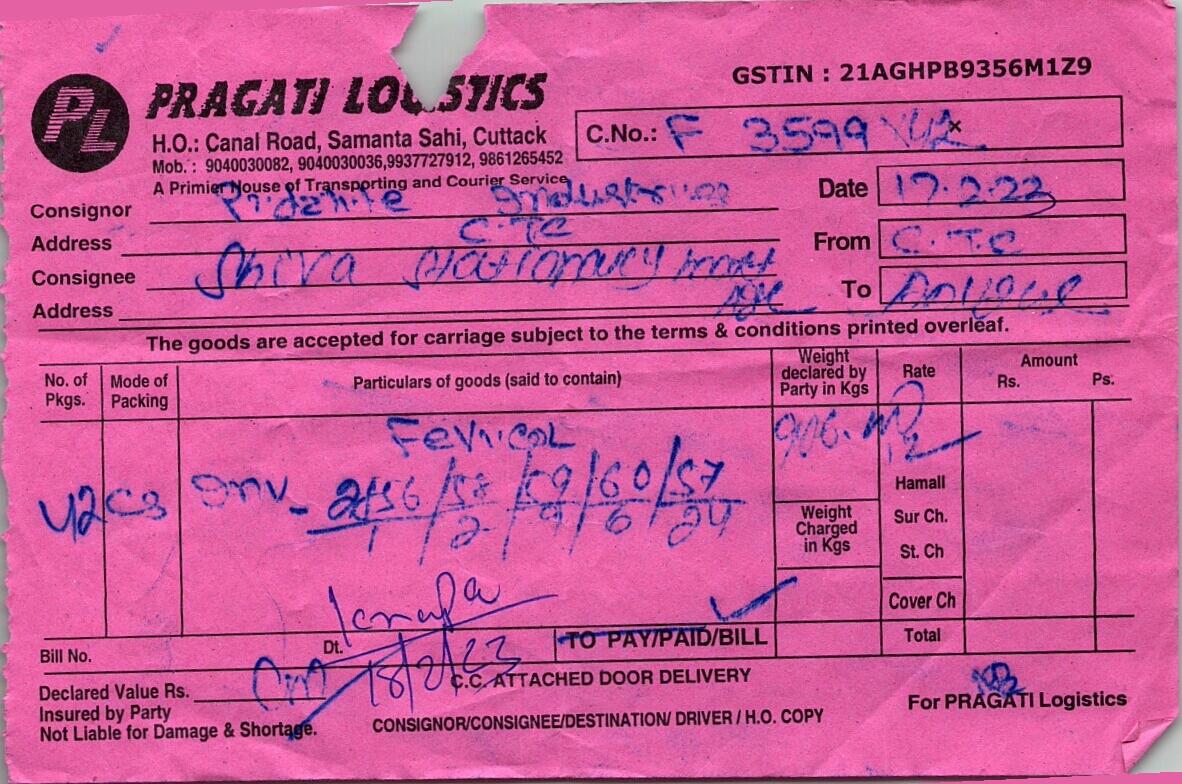 GSTIN : 21AGHPB9356M1Z9
PL PRAGATI LOGISTICS
H.O.: Canal Road, Samanta Sahi, Cuttack
C.No.: F 3599
Mob. : 9040030082, 9040030036,9937727912, 9861265452
A Primier House of Transporting and Courier Service
Date 17.2.23
Consignor Pidilite Industries
Address C.TC
From C.TC
Consignee Shiva Stationary
To
Address
The goods are accepted for carriage subject to the terms & conditions printed overleaf.
No. of Pkgs. Mode of Packing Particulars of goods (said to contain) Weight declared by Party in Kgs Rate Amount Rs. Ps.
Fevicol
42 CS INV - 2456/58/59/60/57
1 / 2 / 9 / 6 / 24
Hamall
Weight Charged in Kgs
Sur Ch.
St. Ch
Cover Ch
TO PAY/PAID/BILL
Total
Bill No. Dt.
18/2/23
Declared Value Rs.
C.C. ATTACHED DOOR DELIVERY
Insured by Party
For PRAGATI Logistics
Not Liable for Damage & Shortage.
CONSIGNOR/CONSIGNEE/DESTINATION/ DRIVER / H.O. COPY